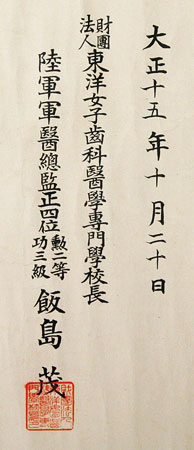 大正十五年十月二十日
財團法人東洋女子齒科醫學專門學校長
陸軍軍醫總監正四位勲二等功三級飯島茂